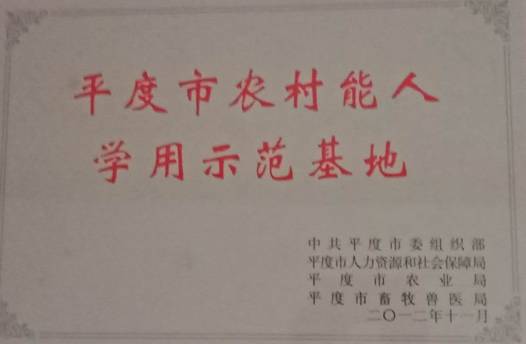 平度市农村能人
学用示范基地
中共平度市委组织部
平度市人力资源和社会保障局
平度市农业局
平度市畜牧兽医局
二〇一二年十一月